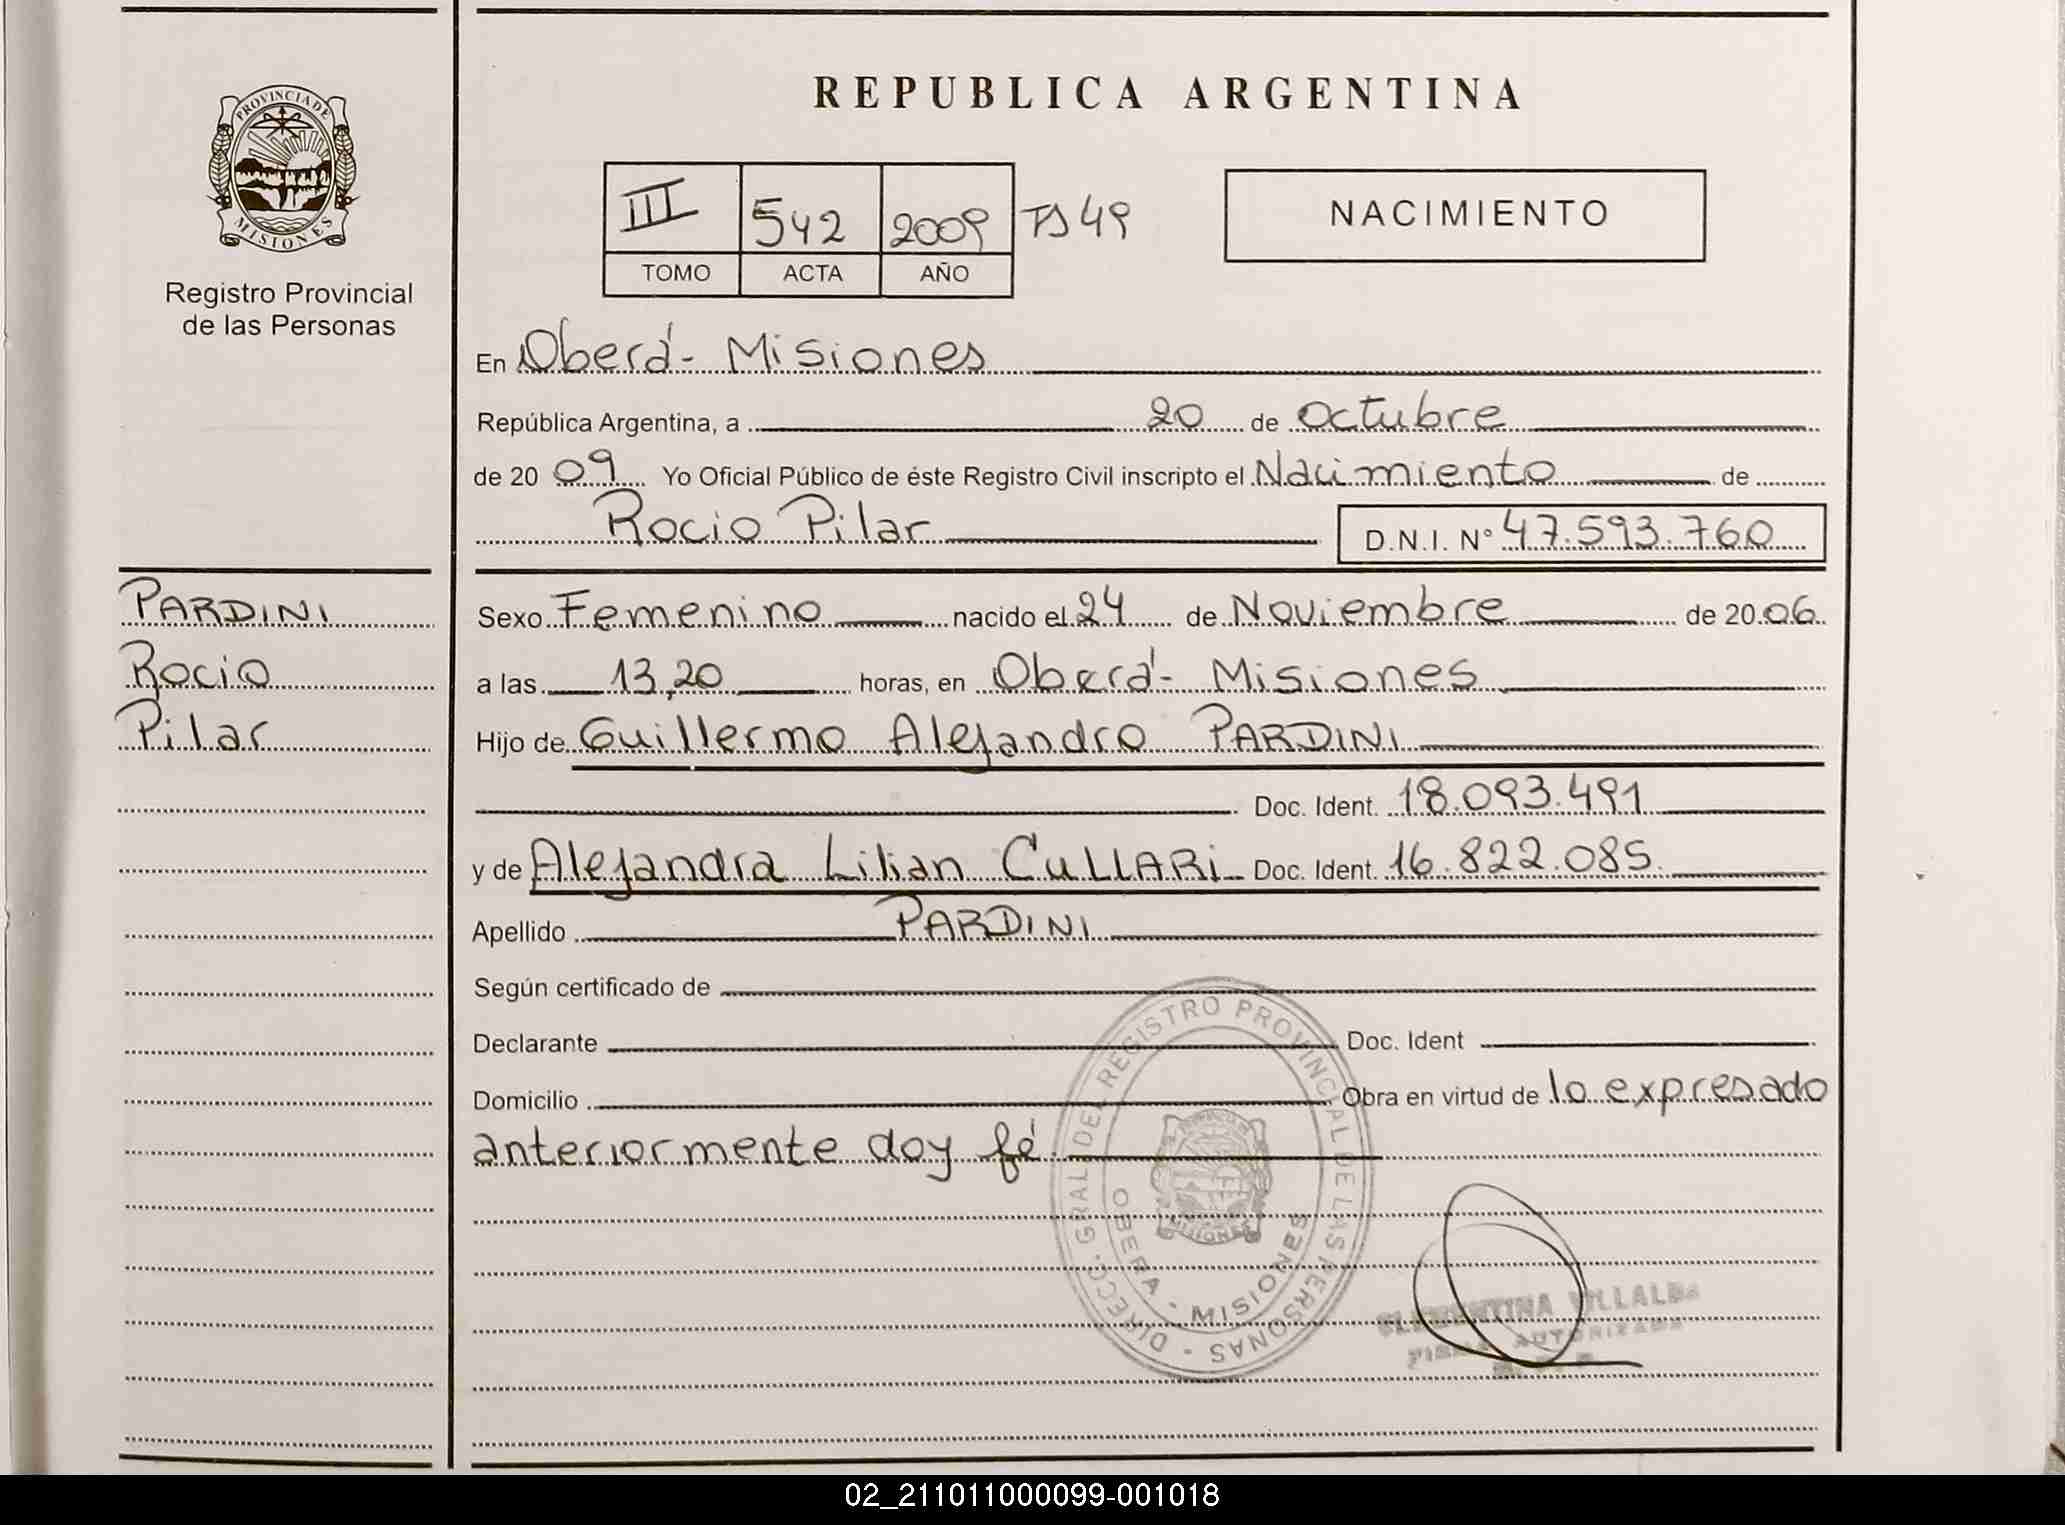 PROVINCIA DE
MISIONES
Registro Provincial
de las Personas
PARDINI
Rocio
Pilar
REPUBLICA ARGENTINA
III 542 2009 TS 49
TOMO ACTA AÑO
NACIMIENTO
En Oberá - Misiones
República Argentina, a 20 de Octubre
de 20 09 Yo Oficial Público de éste Registro Civil inscripto el Nacimiento de
Rocio Pilar D.N.I. N° 47.593.760
Sexo Femenino nacido el 24 de Noviembre de 20 06
a las 13,20 horas, en Oberá - Misiones
Hijo de Guillermo Alejandro PARDINI
Doc. Ident. 18.093.491
y de Alejandra Lilian CULLARI Doc. Ident. 16.822.085
Apellido PARDINI
Según certificado de
Declarante Doc. Ident
Domicilio Obra en virtud de lo expresado
anteriormente doy fé
DIRECC. GRAL DEL REGISTRO PROVINCIAL DE LAS PERSONAS -
OBERA - MISIONES
MISIONES
CLEMENTINA VILLALBA
FIRMA AUTORIZADA
02_211011000099-001018